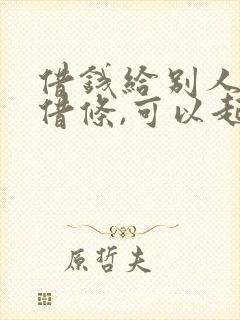 借錢給別人
借條,可以起
原哲夫